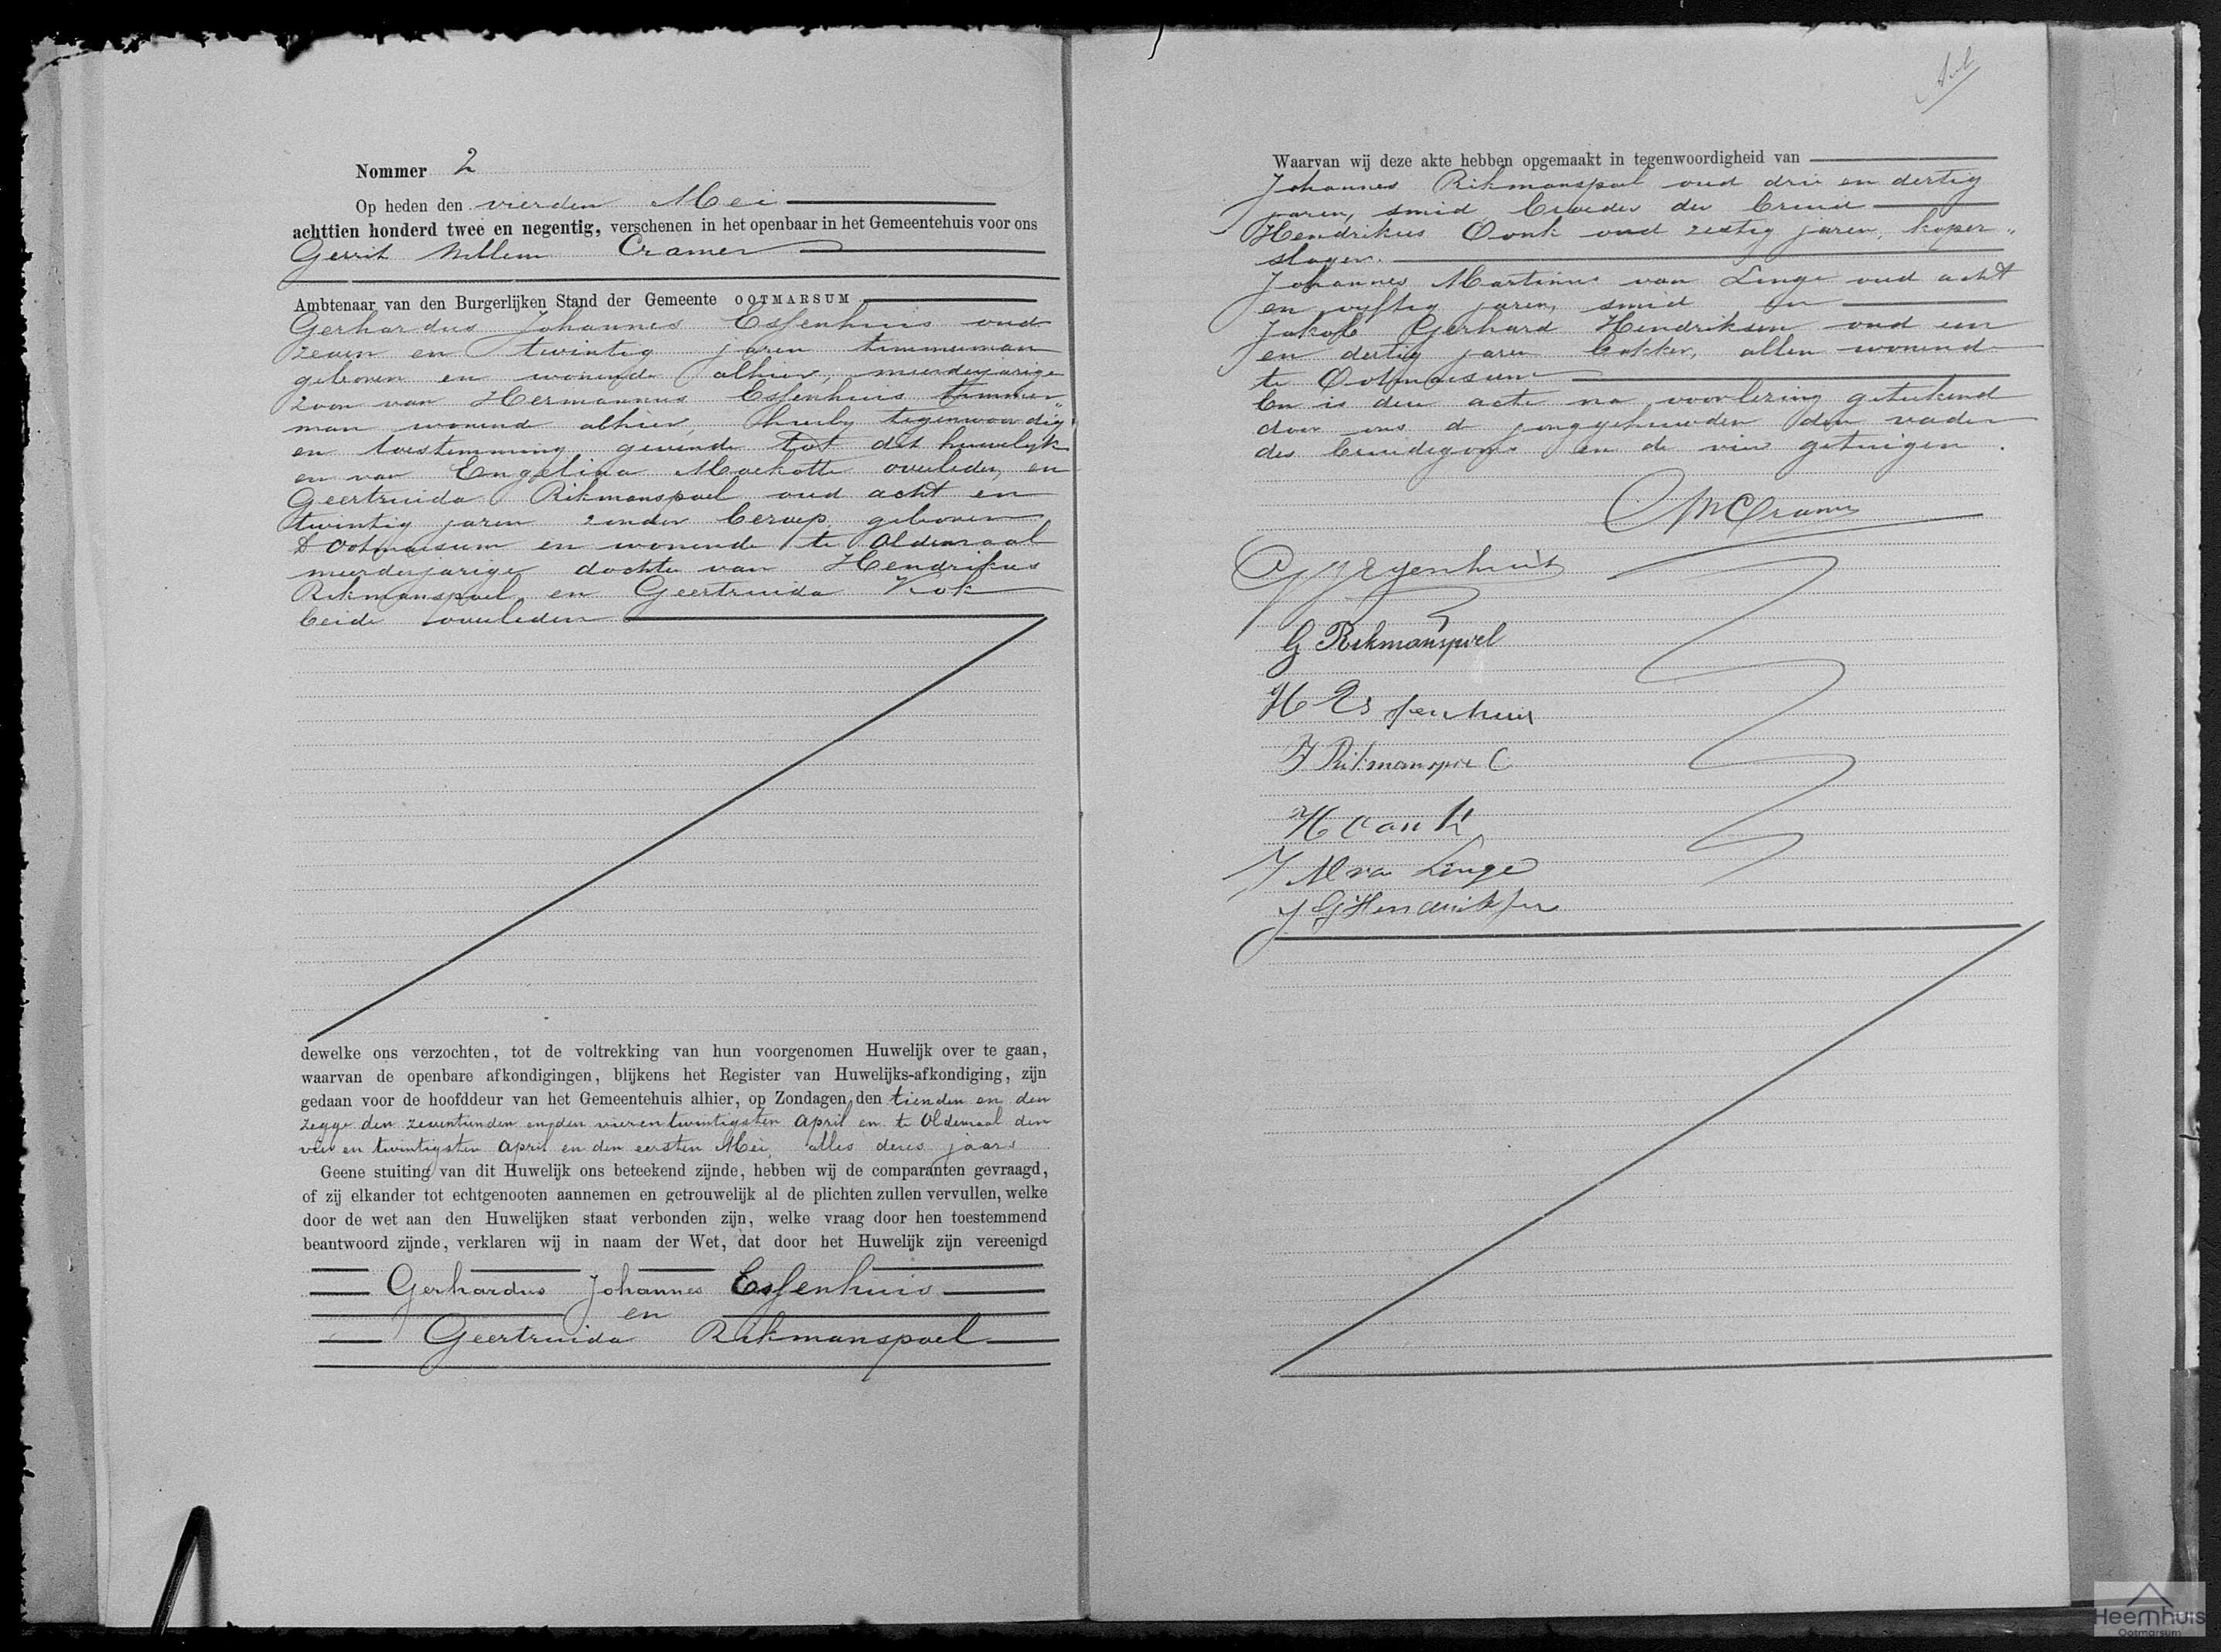 Nommer 2
Op heden den vierden Mei
achttien honderd twee en negentig, verschenen in het openbaar in het Gemeentehuis voor ons
Gerrit Willem Cramer
Ambtenaar van den Burgerlijken Stand der Gemeente OOTMARSUM
Gerhardus Johannes Essenhuis oud
zeven en twintig jaren timmerman
geboren en wonende alhier, meerderjarige
zoon van Hermannus Essenhuis timmer„
man wonend alhier, hierby tegenwoordig
en toestemming gevende tot dit huwelyk
en van Engelina Moekotte overleden, en
Geertruida Rikmanspoel oud acht en
twintig jaren zonder beroep geboren
te Ootmarsum en wonende te Oldenzaal
meerderjarige dochter van Hendrikus
Rikmanspoel en Geertruida Kok
beide overleden
dewelke ons verzochten, tot de voltrekking van hun voorgenomen Huwelijk over te gaan,
waarvan de openbare afkondigingen, blijkens het Register van Huwelijks-afkondiging, zijn
gedaan voor de hoofddeur van het Gemeentehuis alhier, op Zondagen den tienden en den
zegge den zeventienden en den vierentwintigsten April en te Oldenzaal den
vier en twintigsten April en den eersten Mei, alles dezes jaars
Geene stuiting van dit Huwelijk ons beteekend zijnde, hebben wij de comparanten gevraagd,
of zij elkander tot echtgenooten aannemen en getrouwelijk al de plichten zullen vervullen, welke
door de wet aan den Huwelijken staat verbonden zijn, welke vraag door hen toestemmend
beantwoord zijnde, verklaren wij in naam der Wet, dat door het Huwelijk zijn vereenigd
Gerhardus Johannes Essenhuis
en
Geertruida Rikmanspoel
Waarvan wij deze akte hebben opgemaakt in tegenwoordigheid van
Johannes Rikmanspoel oud drie en dertig
jaren, smid broeder der bruid
Hendrikus Oonk oud zestig jaren, koper„
slager.
Johannes Martinus van Linge oud acht
en vyftig jaren, smid en
Jakob Gerhard Hendriksen oud een
en dertig jaren bakker, allen wonend
te Ootmarsum
En is deze acte na voorlezing geteekend
door ons de jonggehuwden den vader
des bruidegoms en de vier getuigen.
GWCramer
GJ Essenhuis
G Rikmanspoel
H Essenhuis
J Rikmanspoel
H Oonk
J M van Linge
J G Hendriksen
Heemhuis
Ootmarsum